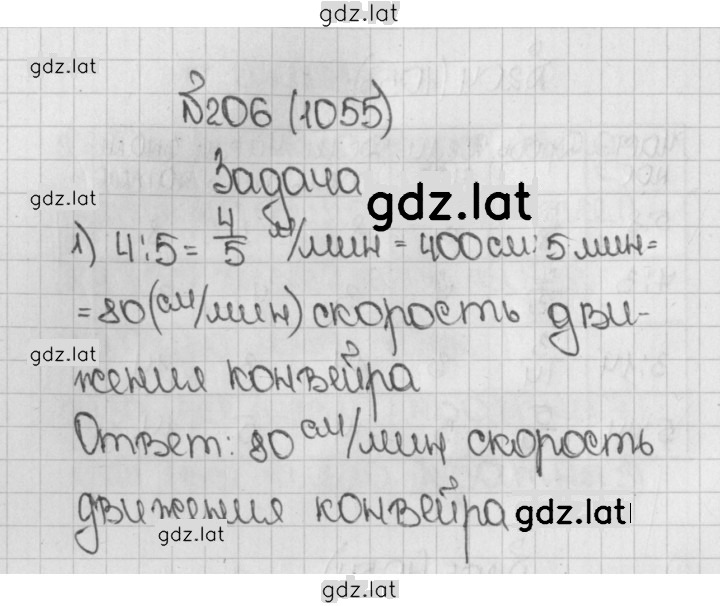 gdz.lat
gdz.lat
№206 (1055)
Задача
gdz.lat
gdz.lat
1) 4:5 = 4/5 м/мин = 400 см : 5 мин =
= 80 (см/мин) скорость дви-
gdz.lat
жения конвейра
Ответ: 80 см/мин скорость
движения конвейра gdz.lat
gdz.lat
gdz.lat